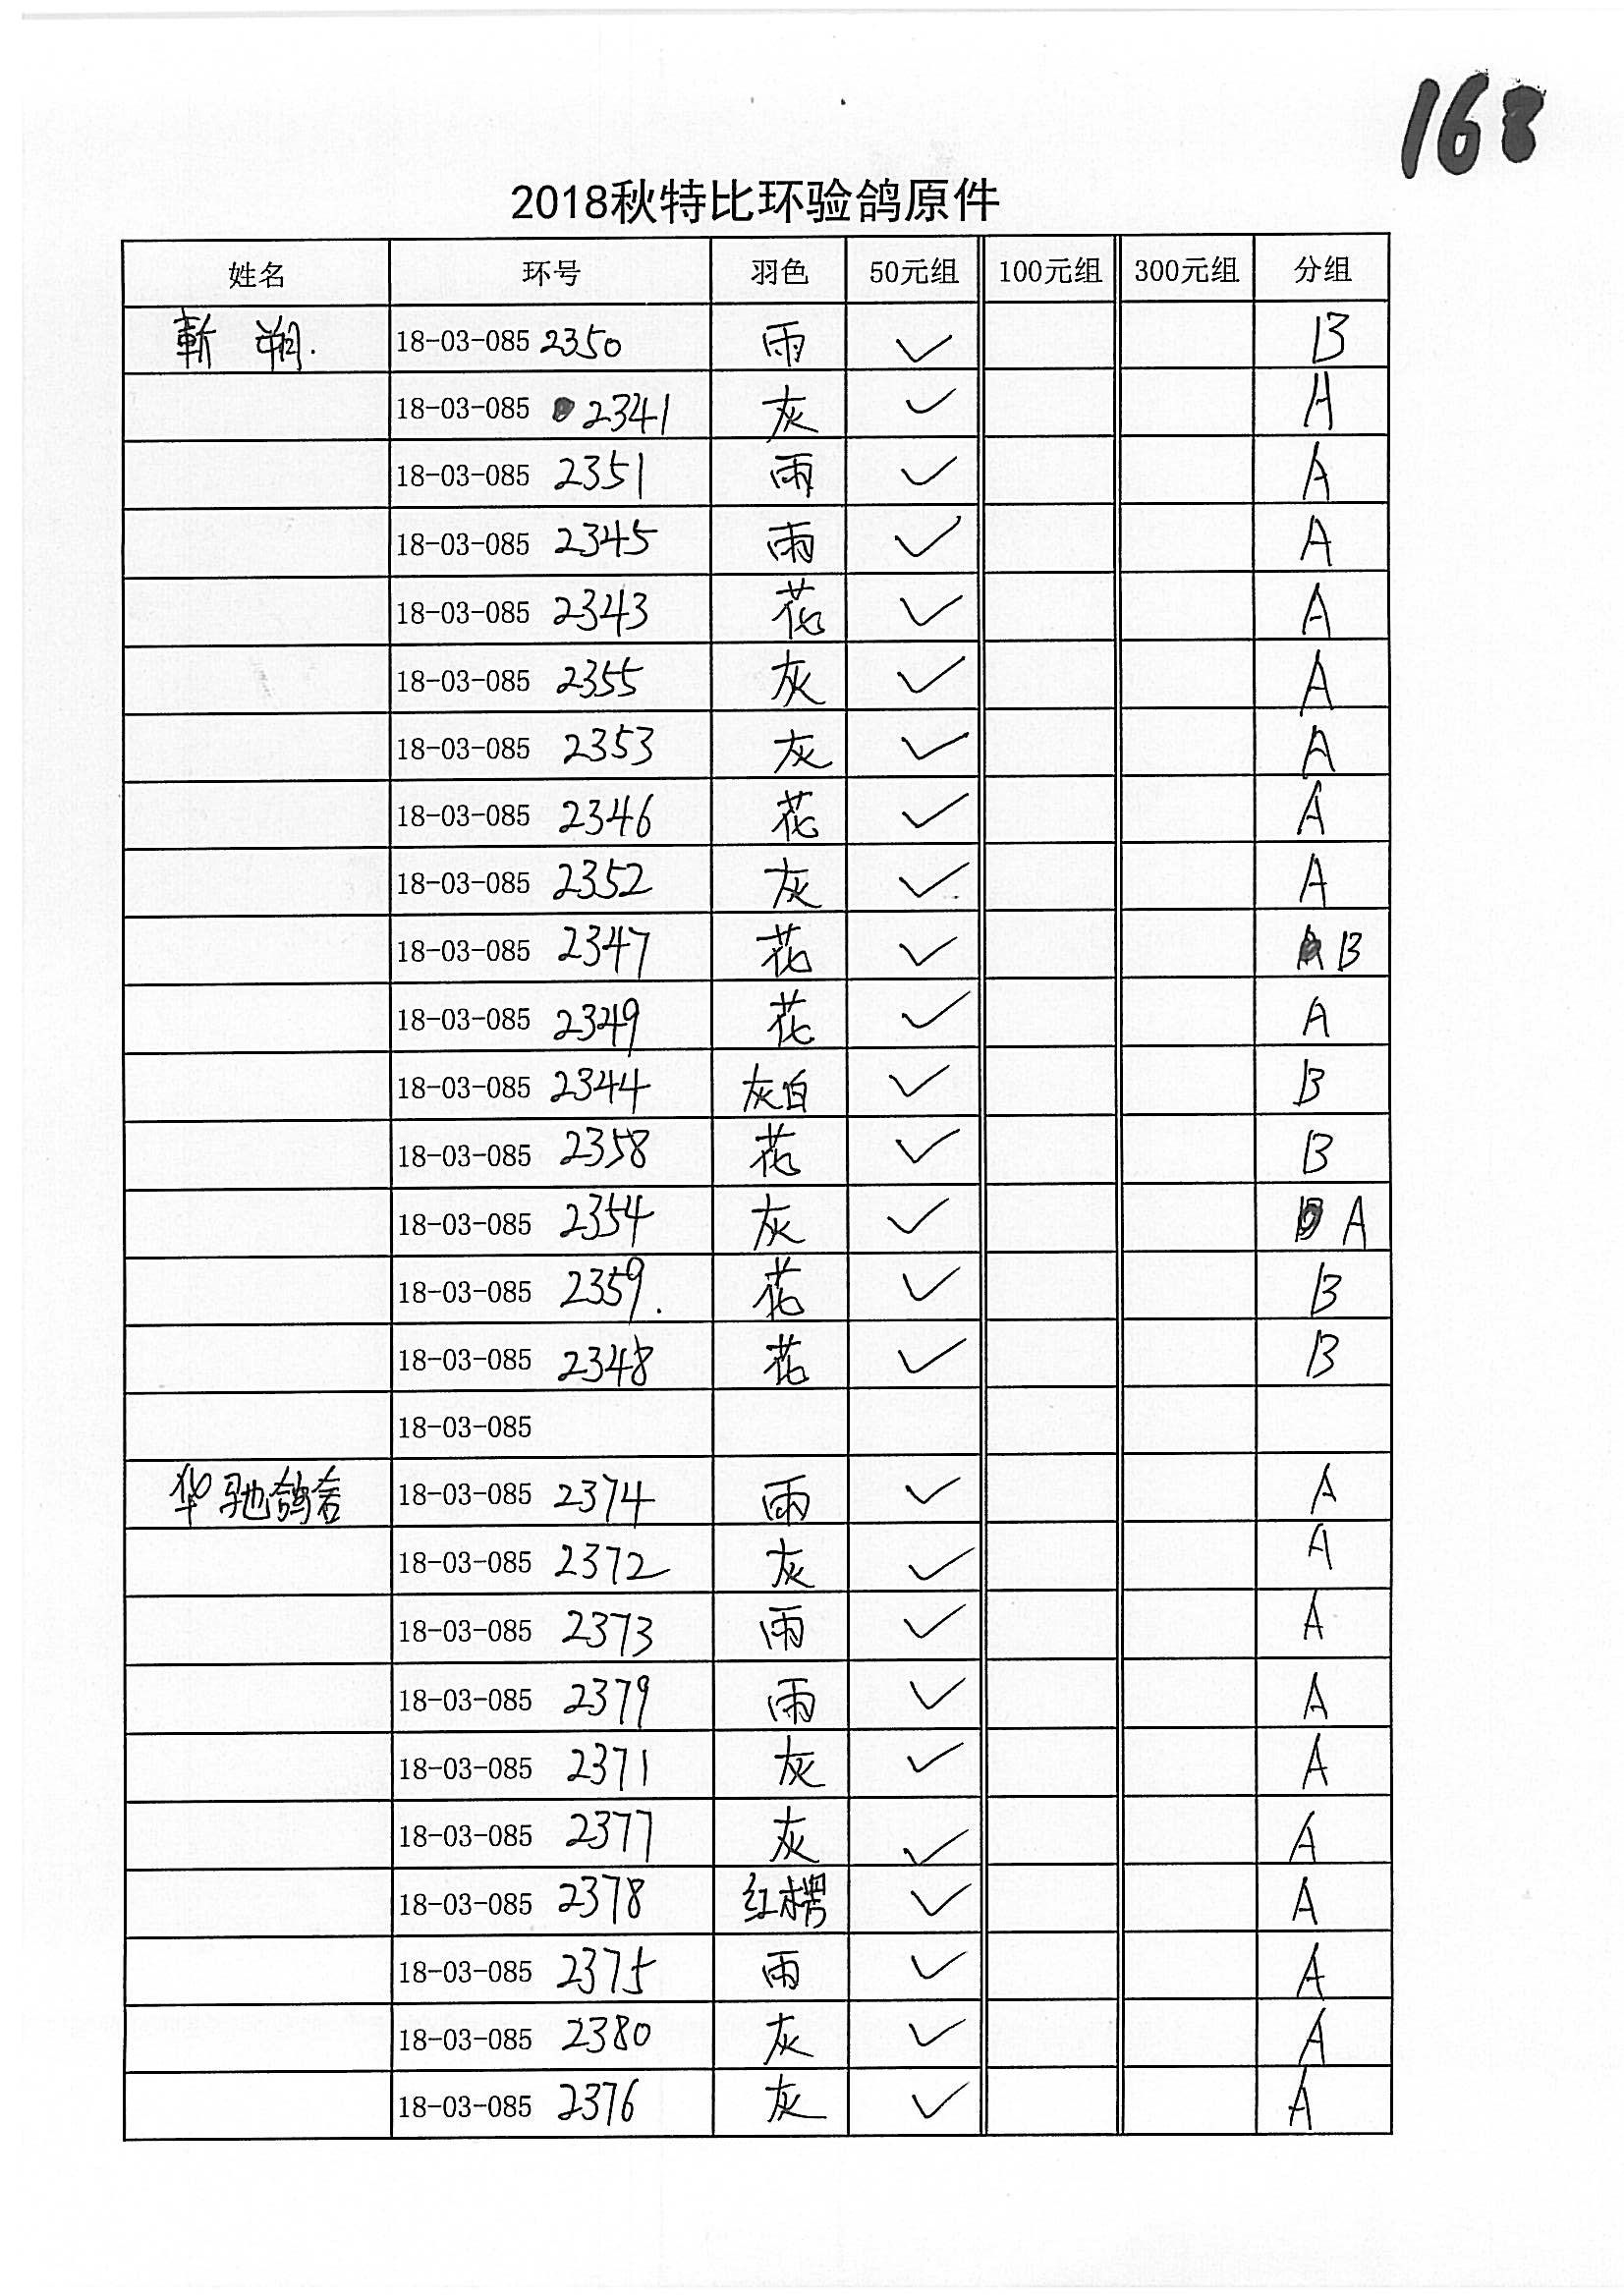 168
2018秋特比环验鸽原件
姓名 环号 羽色 50元组 100元组 300元组 分组
靳 朔. 18-03-085 2350 雨 ✓ B
18-03-085 2341 灰 ✓ A
18-03-085 2351 雨 ✓ A
18-03-085 2345 雨 ✓ A
18-03-085 2343 花 ✓ A
18-03-085 2355 灰 ✓ A
18-03-085 2353 灰 ✓ A
18-03-085 2346 花 ✓ A
18-03-085 2352 灰 ✓ A
18-03-085 2347 花 ✓ B
18-03-085 2349 花 ✓ A
18-03-085 2344 灰白 ✓ B
18-03-085 2358 花 ✓ B
18-03-085 2354 灰 ✓ A
18-03-085 2359. 花 ✓ B
18-03-085 2348 花 ✓ B
18-03-085
华驰鸽舍 18-03-085 2374 雨 ✓ A
18-03-085 2372 灰 ✓ A
18-03-085 2373 雨 ✓ A
18-03-085 2379 雨 ✓ A
18-03-085 2371 灰 ✓ A
18-03-085 2377 灰 ✓ A
18-03-085 2378 红楞 ✓ A
18-03-085 2375 雨 ✓ A
18-03-085 2380 灰 ✓ A
18-03-085 2376 灰 ✓ A